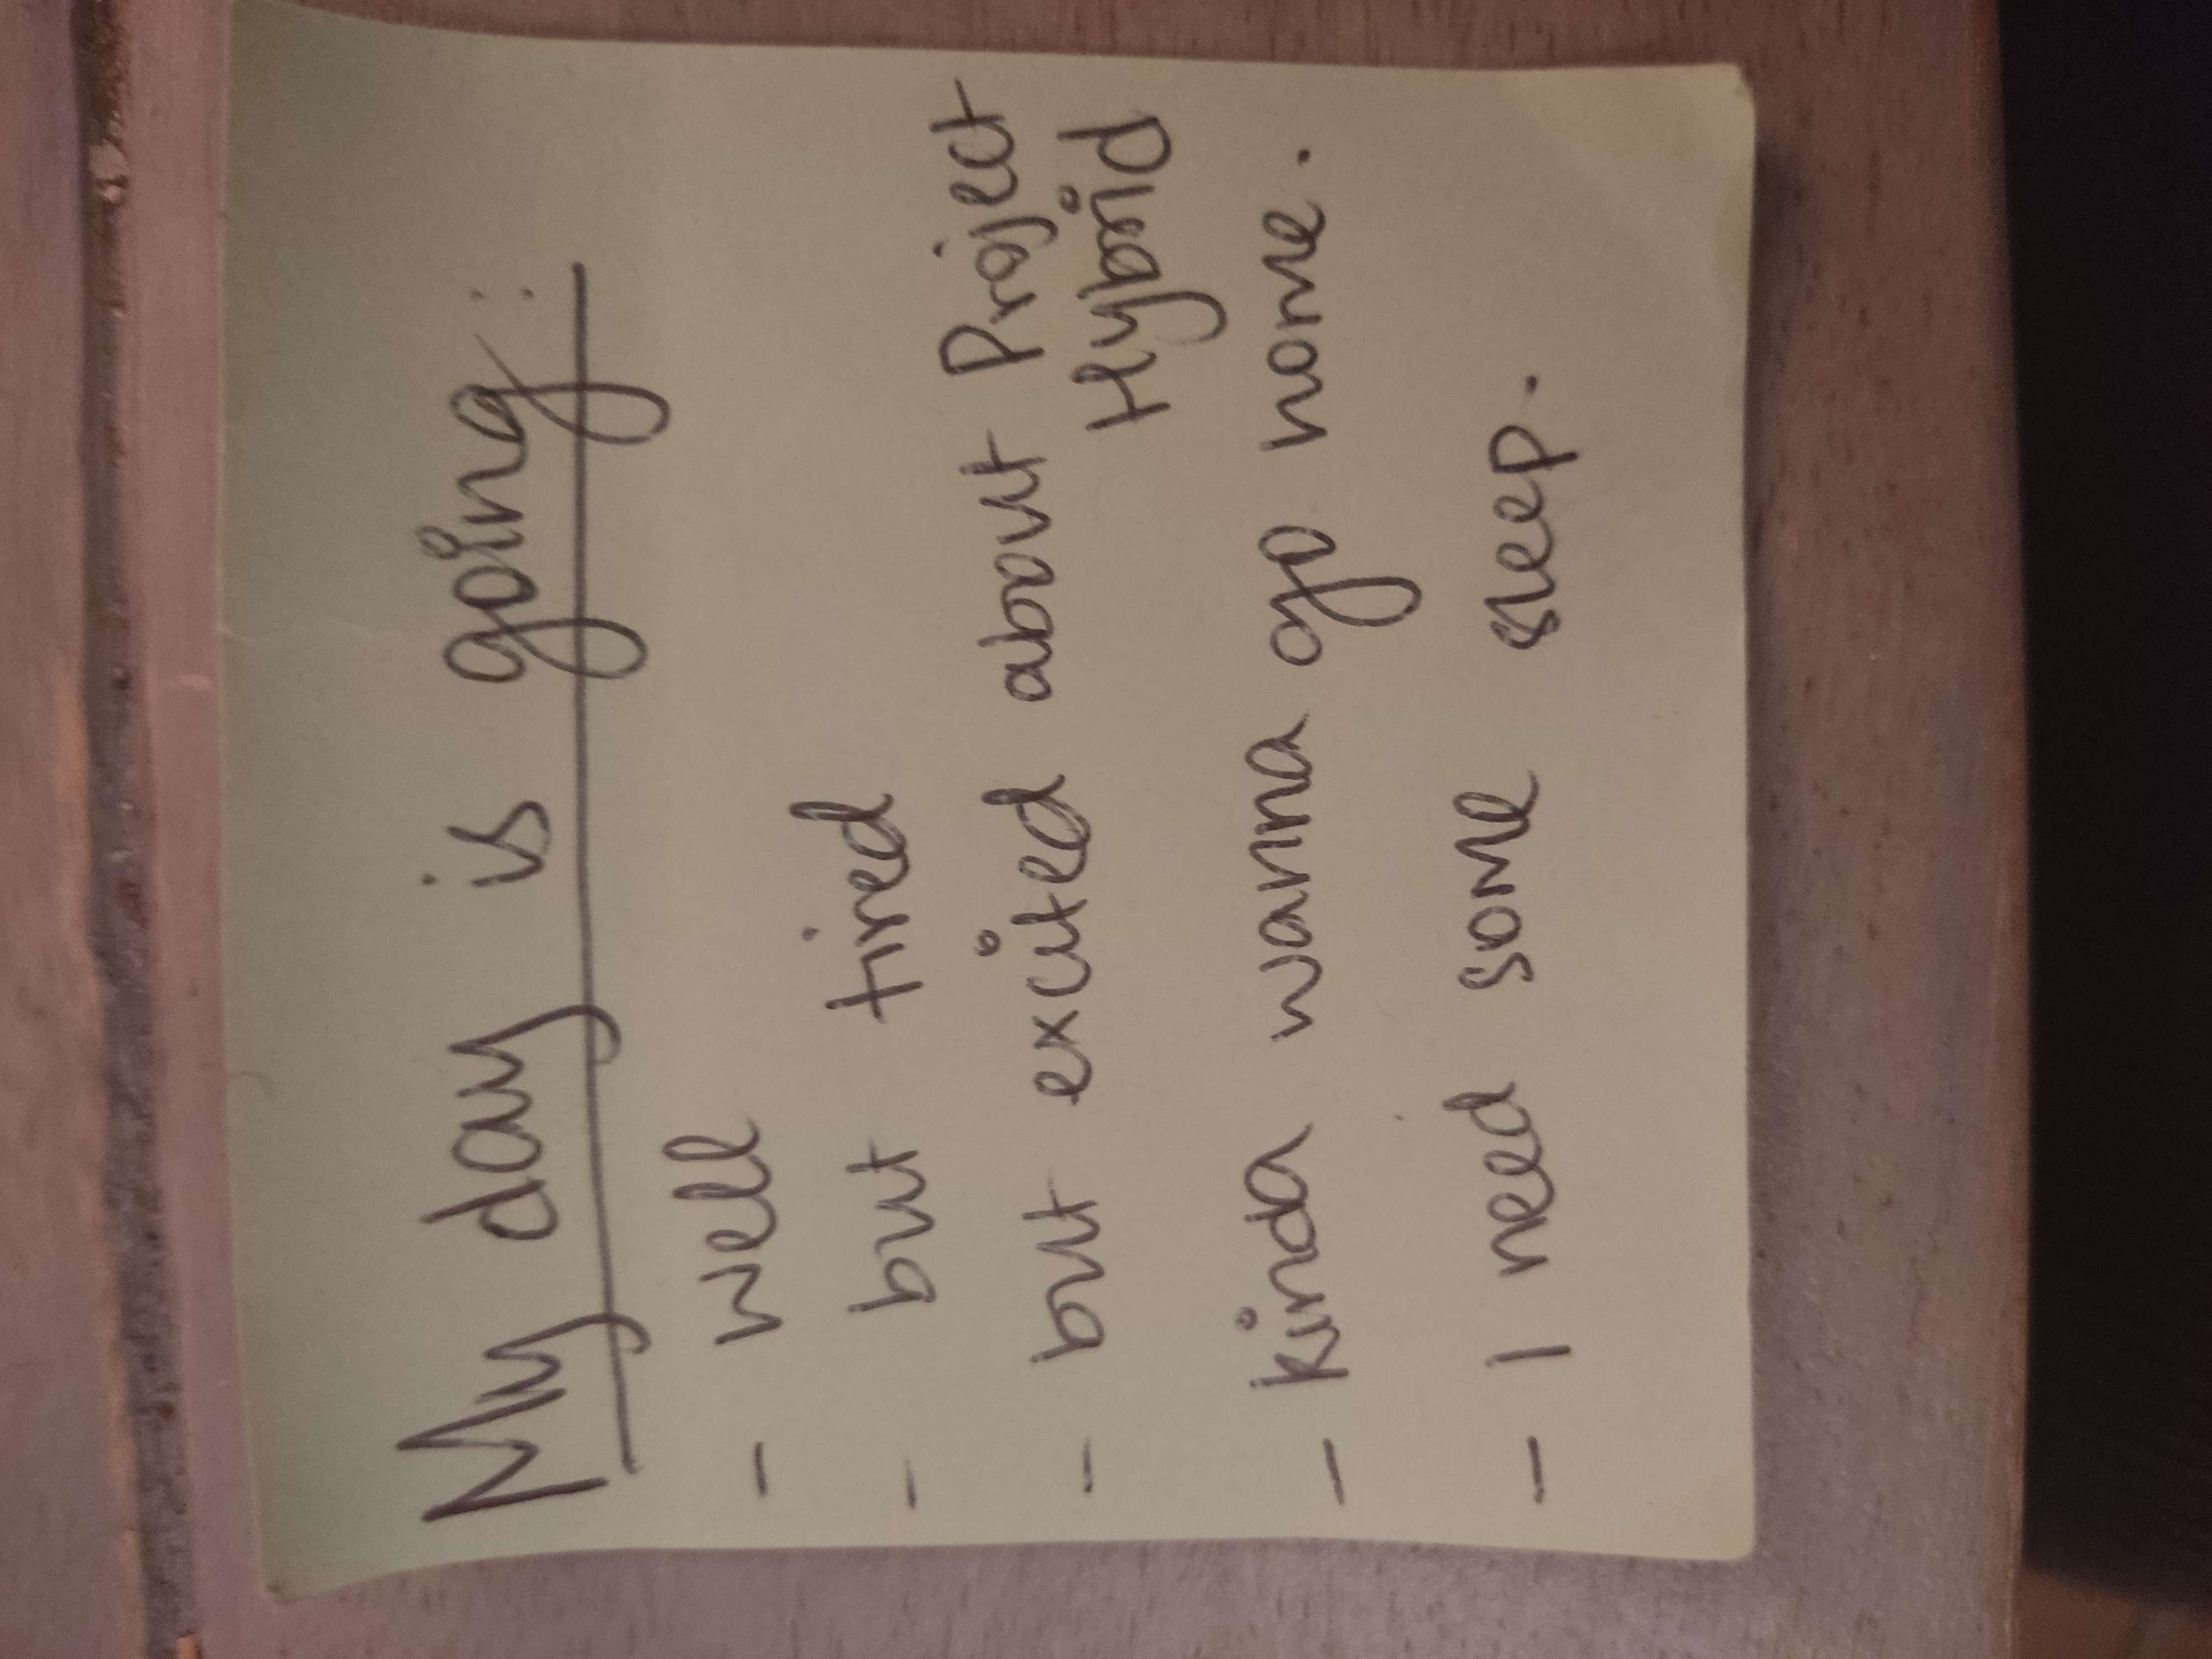 My day is going:
- well
- but tired
- but excited about Project
Hybrid
- kinda wanna go home.
- I need some sleep.